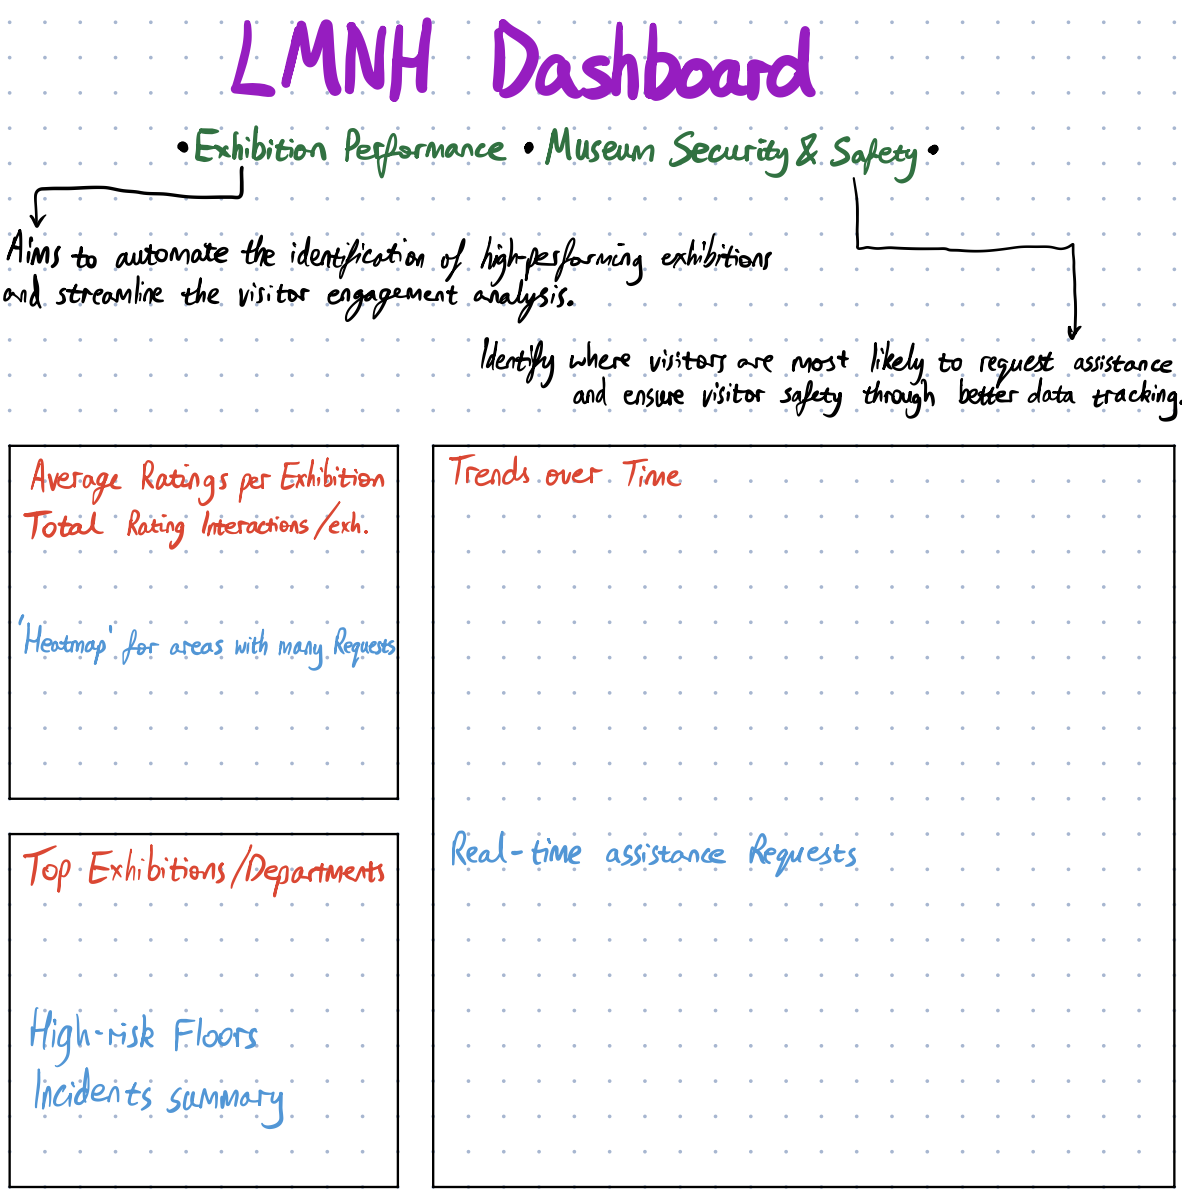 LMNH Dashboard
• Exhibition Performance • Museum Security & Safety •
Aims to automate the identification of high-performing exhibitions
and streamline the visitor engagement analysis.
Identify where visitors are most likely to request assistance
and ensure visitor safety through better data tracking.
Average Ratings per Exhibition
Total Rating Interactions/exh.
'Heatmap' for areas with many Requests
Trends over Time
Real-time assistance Requests
Top Exhibitions/Departments
High-risk Floors
Incidents summary